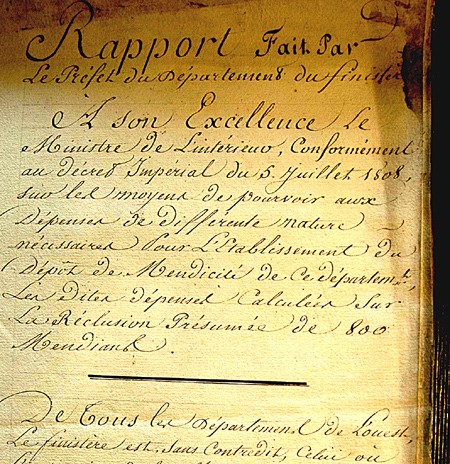 Rapport Fait Par
Le Préfet du Département du finistère
A son Excellence Le
Ministre de L'intérieur, Conformément
au décret Impérial du 5. Juillet 1808,
sur les moyens de pourvoir aux
Dépenses de différente nature
nécessaires pour L'Etablissement du
Dépôt de Mendicité de Ce départemt,
Les dites dépenses Calculées Sur
La Réclusion Présumée de 800
Mendians.
De Tous les Département de L'ouest,
Le finistère est, Sans Contredit, Celui ou